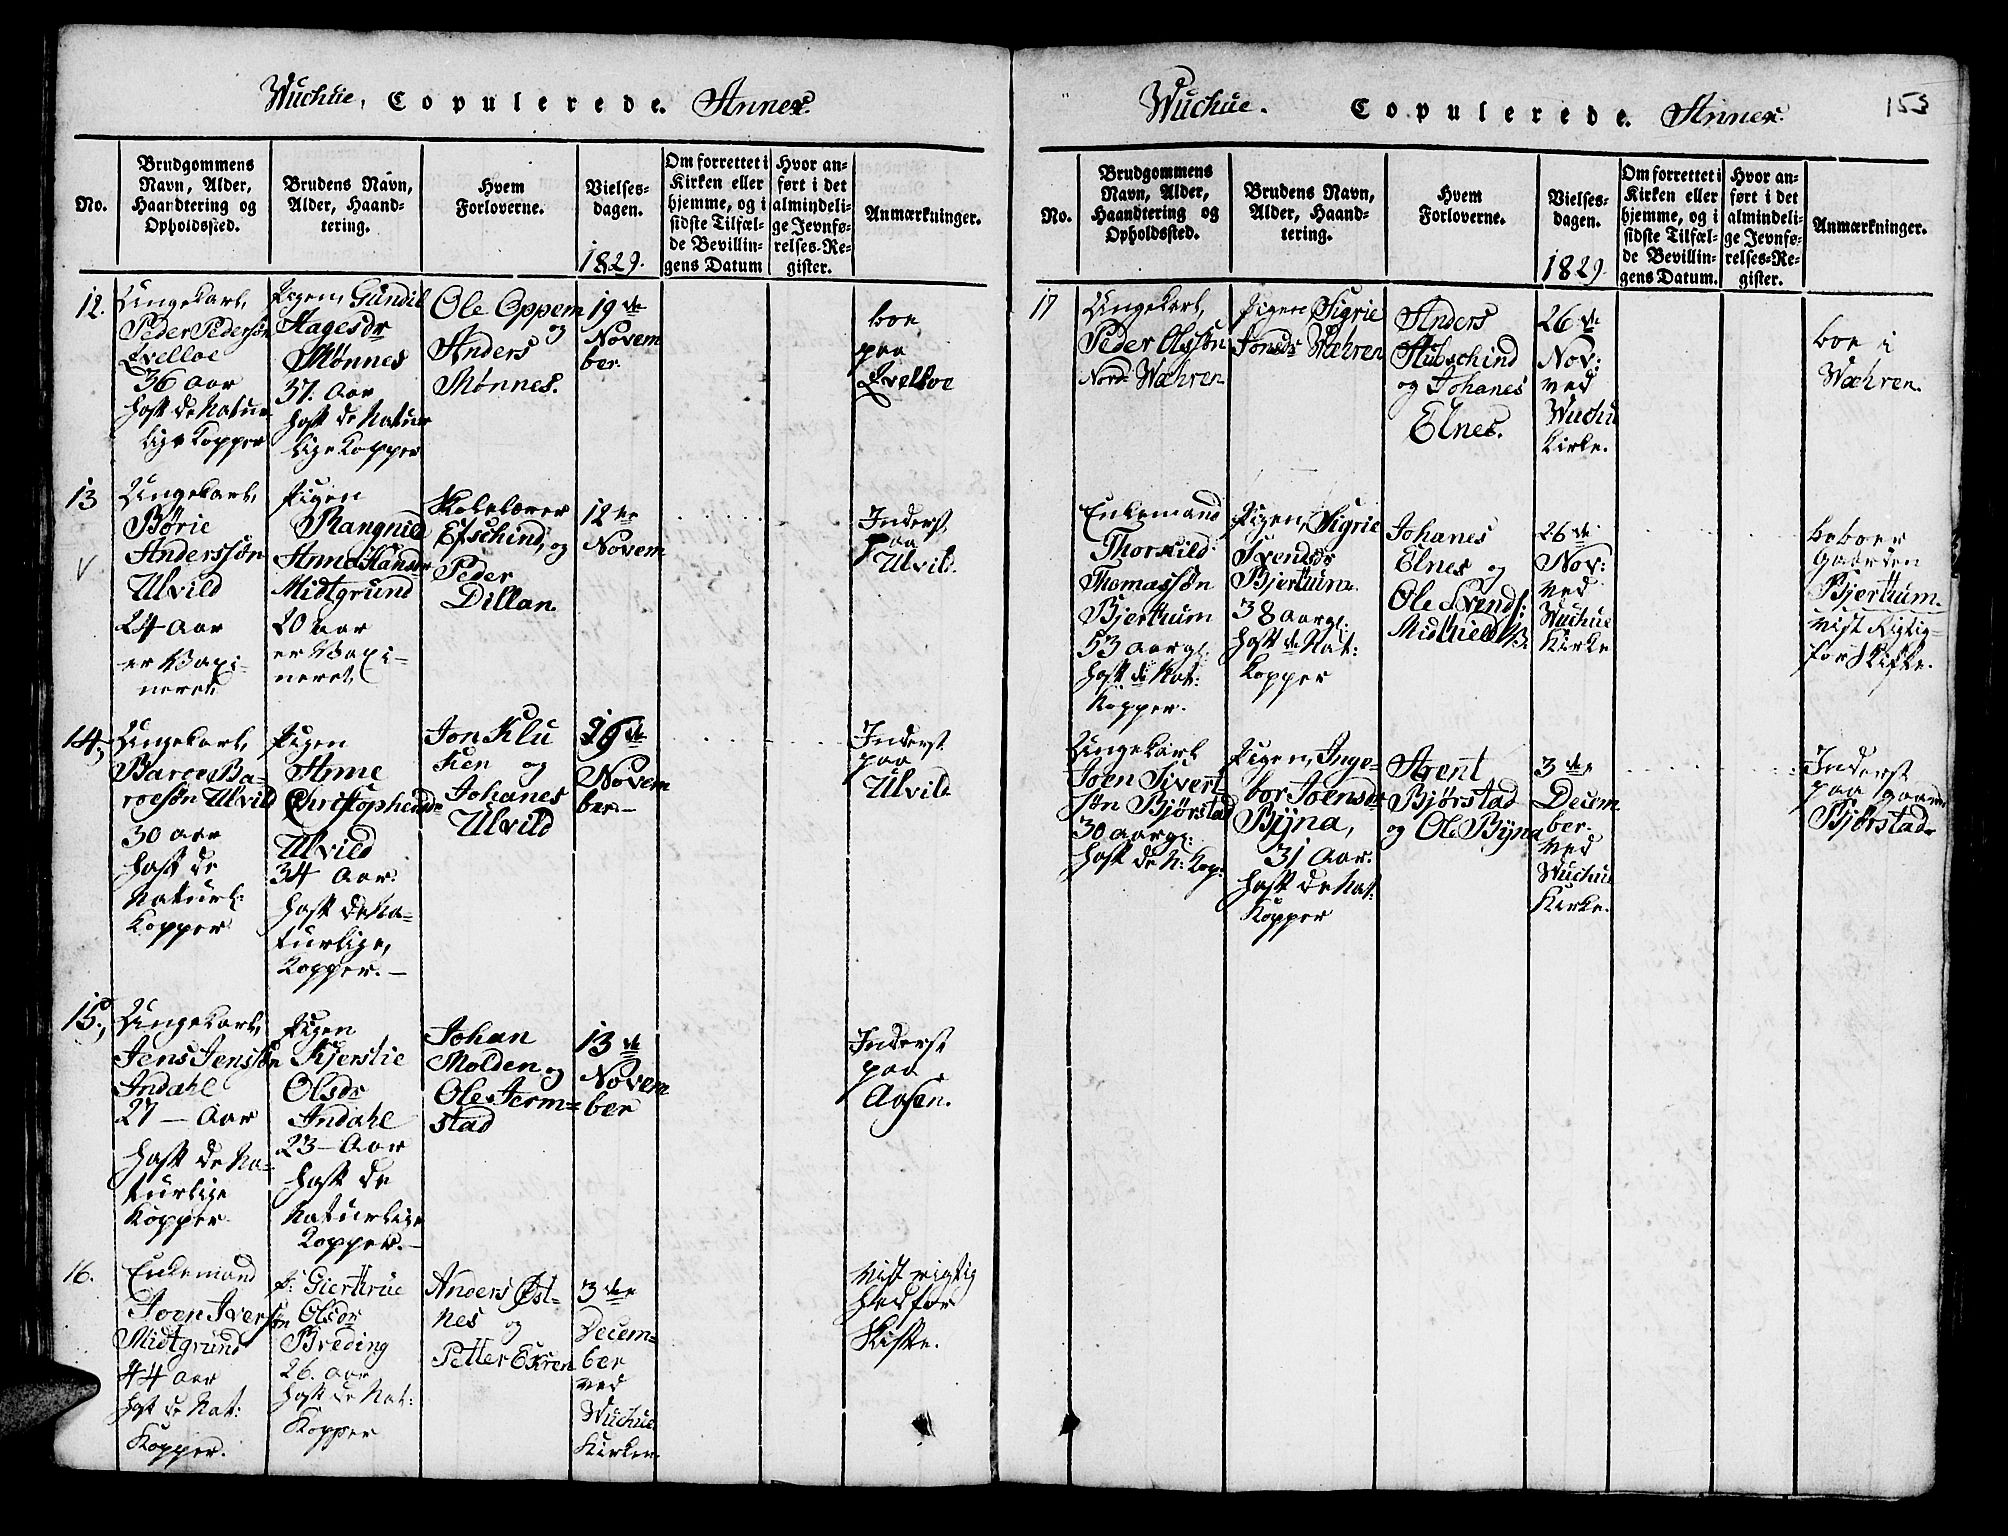 Wuchue. Copulerede. Annex.
No.
Brudgommens
Navn, Alder,
Haandtering og
Opholdssted.
Brudens Navn,
Alder, Haand-
tering.
Hvem
Forloverne.
Vielses-
dagen.
1829.
Om forrettet i
Kirken eller
hjemme, og i
sidste Tilfæl-
de Bevillin-
gens Datum
Hvor an-
ført i det
almindeli-
ge Jevnfø-
relses-Re-
gister.
Anmærkninger.
12.
Ungekarl,
Peder Pedersøn
Qvelloe
36 Aar
haft de Natur
lige Kopper
Pigen, Gundil
Hagesdr
Mønnes
37. Aar
haft de Natur
lige Kopper
Ole Oppem
og
Anders
Mønnes.
19de
Novem
ber.
boe
paa
Qvelloe
13
Ungekarl,
Børie
Anderssøn
Ulvild
24 Aar
er Vaxi-
neret
Pigen
Rangnild
Anna Hansdr
Midtgrund
20 aar
er Vaxi-
neret
Skolelærer
Efschind, og
Peder
Dillan.
12te
Novem
Inderst
paa
Ulvild.
14.
Ungekarl,
Baroe Ba-
roesøn Ulvild
30 aar
haft de
Naturl:
Kopper
Pigen
Anne
Christophersdr
Ulvild
34 Aar
haft de Na-
turlige,
Kopper.-
Jon Klu
ken og
Johanes
Ulvild
Novem
ber-
Inderst
paa
Ulvild
15.
Ungekarl,
Jens Jenssøn
Indahl
27 - Aar
haft de Na-
turlige
Kopper.
Pigen
Kjerstie
Olsdr
Indahl
23 - Aar
haft de
Naturlige
Kopper.-
Johan
Molden og
Ole Jerm-
stad
13de
Novem
ber
Inderst
paa
Aasen.
16.
Enkemand
Joen Iver
søn
Midtgrund
44 aar
haft de Nat:
Kopper.
P: Giertrue
Olsdr
Breding
26. aar
haft de Nat:
Kopper
Anders Øst-
nes og
Petter Ekren
3die
Decem-
ber
ved
Wuchue
Kirken.
Vist rigtig
hed for
Skifte.
Wuchue. Copulerede. Annex.
153
No.
Brudgommens
Navn, Alder,
Haandtering og
Opholdssted.
Brudens Navn,
Alder, Haand-
tering.
Hvem
Forloverne.
Vielses-
dagen.
1829.
Om forrettet i
Kirken eller
hjemme, og i
sidste Tilfæl-
de Bevillin-
gens Datum.
Hvor an-
ført i det
almindeli-
ge Jevnfø-
relses-Re-
gister.
Anmærkninger.
17
Ungekarl,
Peder Olssøn
Nord: Wæhren
Pigen Sigrie
Jonsdr Wæhren
Anders
Stubschind
og Johanes
Elnes.
26de
Nov:
ved
Wuchu
Kirke.
boe i
Wæhren.
Enkemand
Thorkild
Thomassøn
Bjertnum
53 aarg:
haft de Nat:
Kopper.
Pigen, Sigrie
Svendsdr
Bjertnum
38 aarg:
haft de Nat:
Kopper
Johanes
Elnes og
Ole Svends:
26de
Nov:
ved
Wuchue
Kirke
beboer
gaarden
Bjertnum.
vist Rigtig-
for Skifte.
Ungekarl
Joen Sivert
søn Bjørstad
30 aarg:
haft de N: Kop:
Pigen, Inge-
bor Joensdr
Byna,
31 Aar.
haft de Nat:
Kopper
Arent
Bjørstad
og Ole Byna
3die
Decem
ber.
ved
Wuchue
Kirke.
Inderst
paa gaarden
Bjørstad.